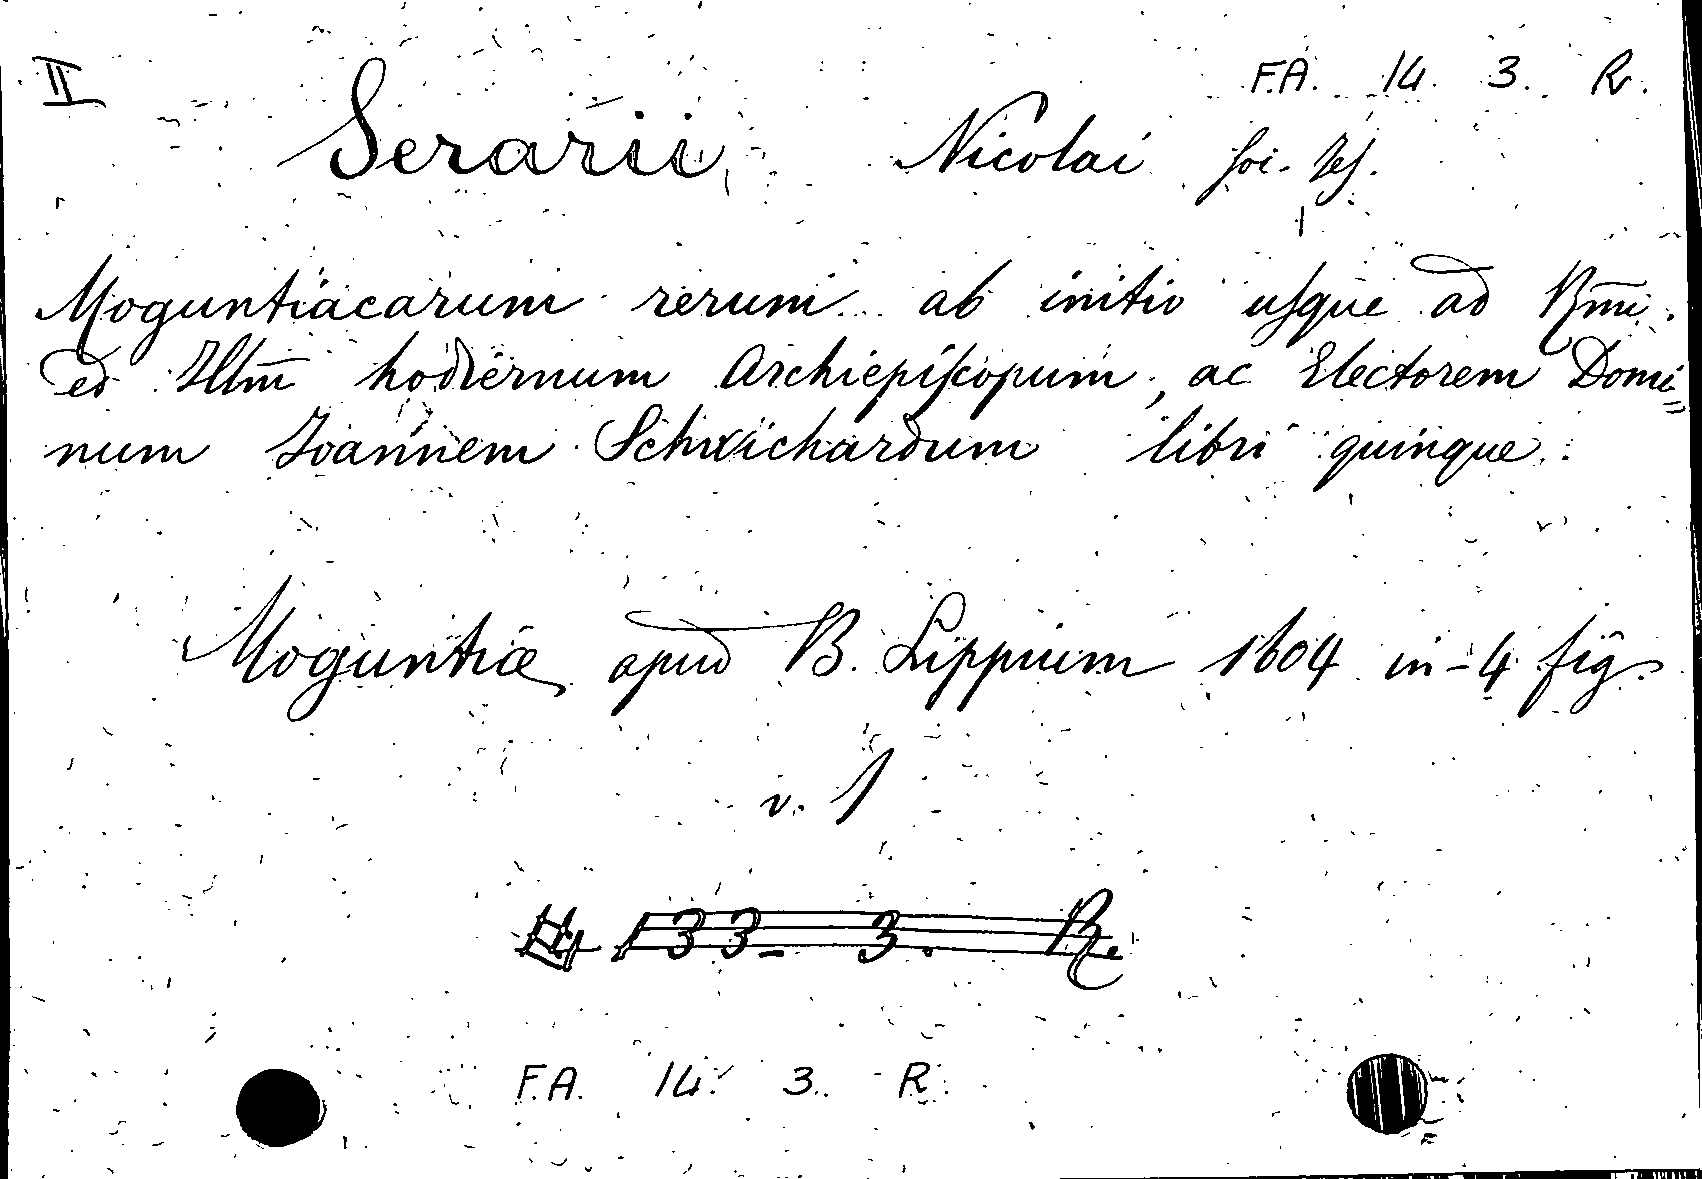 II F.A. 14. 3. R.
Serarii, Nicolai soi. Jes.
Moguntiacarum rerum ab initio usque ad Rm̄i.
ed Illm̄ hodiernum Archiepiscopum, ac Electorem Domi=
num Joannem Schwichardum libri quinque.
Moguntiæ apud B. Lippium 1604 in-4 fig.
v. 1
133- 3. R.
F.A. 14. 3. R.